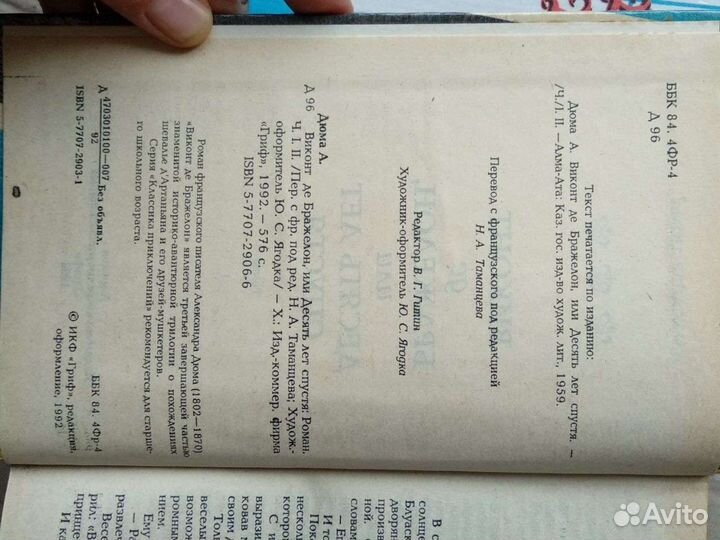 ББК 84. 4Фр-4
Д 96
Текст печатается по изданию:
Дюма А. Виконт де Бражелон, или Десять лет спустя. —
/Ч./ I. II — Алма-Ата: Каз. гос. изд-во худож. лит., 1959.
Перевод с французского под редакцией
Н. А. Таманцева
Редактор В. Г. Гитин
Художник-оформитель Ю. С. Ягодка
Дюма А.
Д 96
Виконт де Бражелон, или Десять лет спустя: Роман.
Ч. I. II. /Пер. с фр. под ред. Н. А. Таманцева; Худож.-
оформитель Ю. С. Ягодка/ — Х.: Изд.-коммер. фирма
«Гриф», 1992. — 576 с.
ISBN 5-7707-2906-6
Роман французского писателя Александра Дюма (1802—1870)
«Виконт де Бражелон» является третьей завершающей частью
знаменитой историко-авантюрной трилогии о похождениях
шевалье д'Артаньяна и его друзей-мушкетеров.
Серия «Классика приключений» рекомендуется для старше-
го школьного возраста.
Д 4703010100—007 Без объявл.
92
ББК 84. 4Фр-4
ISBN 5-7707-2903-1
© ИКФ «Гриф», редакция,
оформление, 1992
В с
солнце
Блуаск
дворян
произв
ной.
— Ег
словам
И то
Пока
несколь
которой
С и
вырази
ковав м
своим
Толь
веселы
возмож
ромным
нием.
Ему
— Ре
развлеч
Весе
рил: «В
принце
И ка
Avito